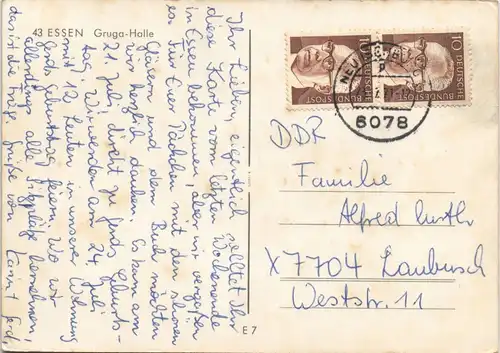 43 ESSEN Gruga-Halle
Ihr Lieben, eigentlich solltet Ihr
diese Karte vom letzten Wochenende
in Essen bekommen, aber wir vergaßen
es. Für Euer Päckchen mit den schönen
Gläsern und dem Buch möchten
wir herzlich danken. Es kam am
21. Juli direkt zu Gerds Geburts-
tag. Wir werden am 24. Juli
mit 13 Leuten in unserer Wohnung
Gerds Geburtstag feiern. Wo wir
allerdings alle Sitzplätze hernehmen,
das ist die Frage. Grüße von
Karin + Gerd
E 7
10 DEUTSCHE BUNDESPOST
10 DEUTSCHE BUNDESPOST
NEU
6078
DDR
Familie
Alfred
X7704 Laubusch
Weststr. 11